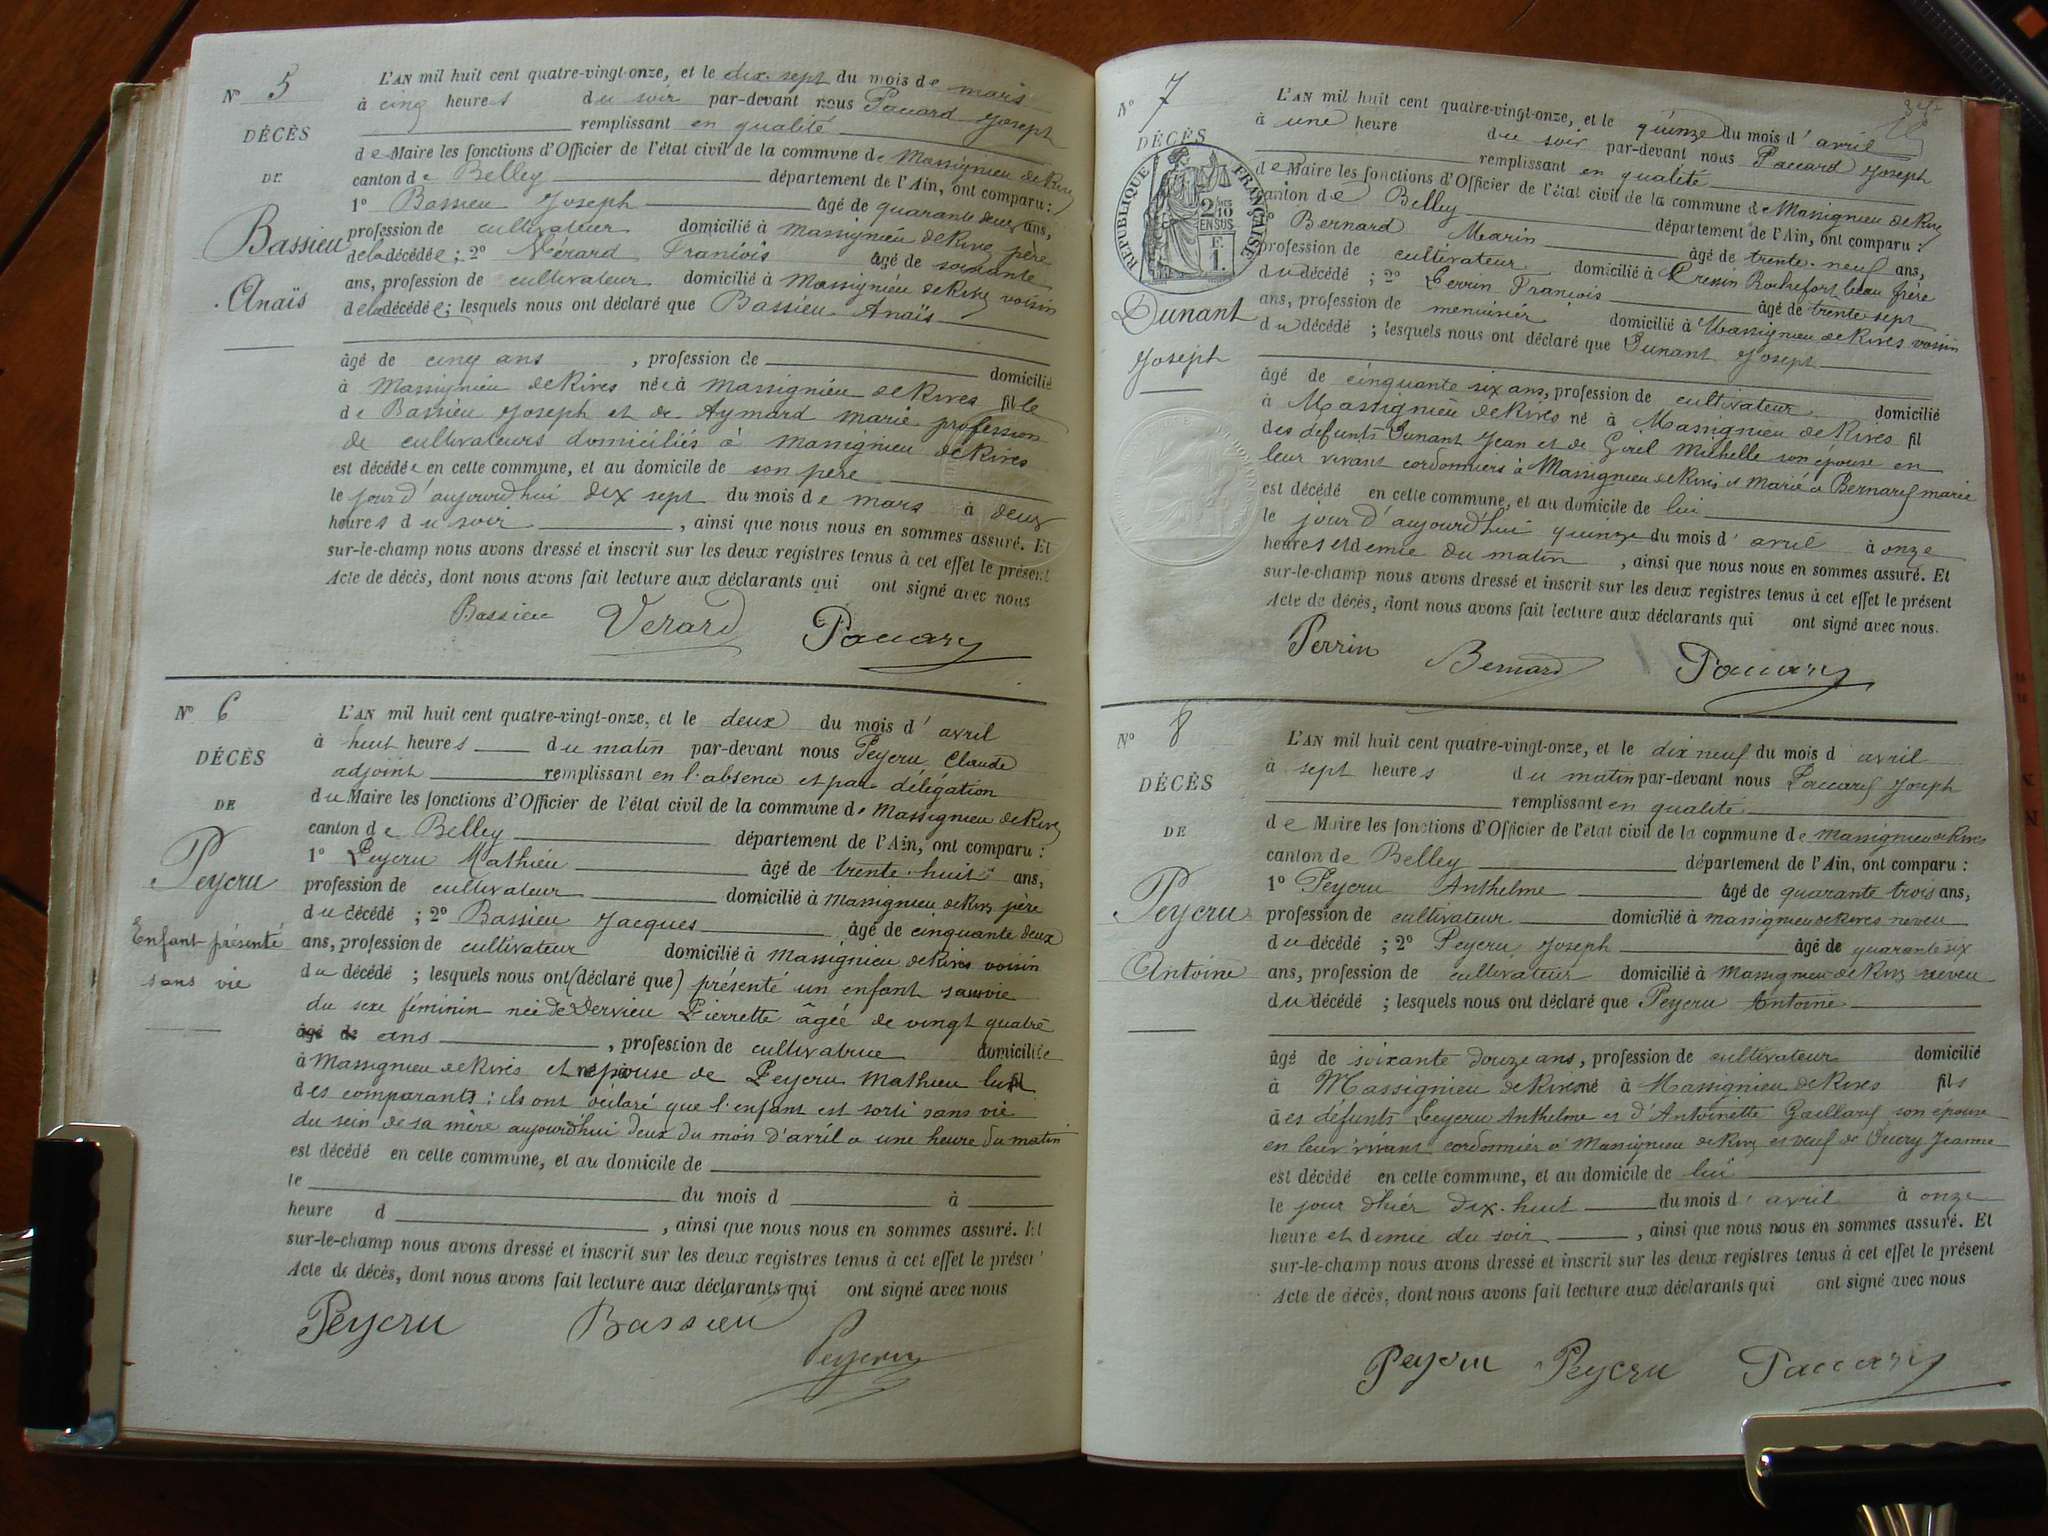 N° 5
DÉCÈS
DE
Bassieu
Anaïs
L'AN mil huit cent quatre-vingt-onze, et le dix-sept du mois de mars
à cinq heures du soir par-devant nous Paccard Joseph
remplissant en qualité
de Maire les fonctions d'Officier de l'état civil de la commune de Massignieu de Rives
canton de Belley département de l'Ain, ont comparu :
1° Bassieu Joseph âgé de quarante deux ans,
profession de cultivateur domicilié à Massignieu de Rives père
de la décédée ; 2° Vérard François âgé de soixante
ans, profession de cultivateur domicilié à Massignieu de Rives voisin
de la décédée ; lesquels nous ont déclaré que Bassieu Anaïs
âgé de cinq ans , profession de domicilié
à Massignieu de Rives née à Massignieu de Rives fille
de Bassieu Joseph et de Aymard Marie profession
de cultivateurs domiciliés à Massignieu de Rives
est décédée en cette commune, et au domicile de son père
le jour d'aujourdhui dix sept du mois de mars à deux
heures du soir , ainsi que nous nous en sommes assuré. Et
sur-le-champ nous avons dressé et inscrit sur les deux registres tenus à cet effet le présent
Acte de décès, dont nous avons fait lecture aux déclarants qui ont signé avec nous
Bassieu Verard Paccard
N° 6
DÉCÈS
DE
Peycru
Enfant présenté
sans vie
L'AN mil huit cent quatre-vingt-onze, et le deux du mois d'avril
à huit heures du matin par-devant nous Peycru Claude
adjoint remplissant en l'absence et par délégation
du Maire les fonctions d'Officier de l'état civil de la commune de Massignieu de Rives
canton de Belley département de l'Ain, ont comparu :
1° Peycru Mathieu âgé de trente-huit ans,
profession de cultivateur domicilié à Massignieu de Rives père
du décédé ; 2° Bassieu Jacques âgé de cinquante deux
ans, profession de cultivateur domicilié à Massignieu de Rives voisin
du décédé ; lesquels nous ont (déclaré que) présenté un enfant sans vie
du sexe féminin née de Vervieu Pierrette âgée de vingt quatre
âgé de ans , profession de cultivatrice domiciliée
à Massignieu de Rives et épouse de Peycru Mathieu
des comparants : ils ont déclaré que l'enfant est sorti sans vie
du sein de sa mère aujourdhui deux du mois d'avril à une heure du matin
est décédé en cette commune, et au domicile de
le du mois d à
heure d , ainsi que nous nous en sommes assuré. Et
sur-le-champ nous avons dressé et inscrit sur les deux registres tenus à cet effet le présent
Acte de décès, dont nous avons fait lecture aux déclarants qui ont signé avec nous
Peycru Bassieu
Peycru
N° 7
DÉCÈS
RÉPUBLIQUE FRANÇAISE
2/10 EN SUS
F. 1.
Dunant
Joseph
L'AN mil huit cent quatre-vingt-onze, et le quinze du mois d'avril
à une heure du soir par-devant nous Paccard Joseph
remplissant en qualité
de Maire les fonctions d'Officier de l'état civil de la commune de Massignieu de Rives
canton de Belley département de l'Ain, ont comparu :
1° Bernard Marin âgé de trente-neuf ans,
profession de cultivateur domicilié à Cressin Rochefort beau frère
du décédé ; 2° Perrin François âgé de trente sept
ans, profession de menuisier domicilié à Massignieu de Rives voisin
du décédé ; lesquels nous ont déclaré que Dunant Joseph
âgé de cinquante six ans, profession de cultivateur domicilié
à Massignieu de Rives né à Massignieu de Rives fil
des défunts Dunant Jean et de Michelle son épouse en
leur vivant cordonniers à Massignieu de Rives et marié à Bernard Marie
est décédé en cette commune, et au domicile de lui
le jour d'aujourd'hui quinze du mois d'avril à onze
heures et demie du matin , ainsi que nous nous en sommes assuré. Et
sur-le-champ nous avons dressé et inscrit sur les deux registres tenus à cet effet le présent
Acte de décès, dont nous avons fait lecture aux déclarants qui ont signé avec nous.
Perrin Bernard Paccard
N° 8
DÉCÈS
DE
Peycru
Antoine
L'AN mil huit cent quatre-vingt-onze, et le dix neuf du mois d avril
à sept heures du matin par-devant nous Paccard Joseph
remplissant en qualité
de Maire les fonctions d'Officier de l'état civil de la commune de Massignieu de Rives
canton de Belley département de l'Ain, ont comparu :
1° Peycru Anthelme âgé de quarante trois ans,
profession de cultivateur domicilié à Massignieu de Rives neveu
du décédé ; 2° Peycru Joseph âgé de quarante six
ans, profession de cultivateur domicilié à Massignieu de Rives neveu
du décédé ; lesquels nous ont déclaré que Peycru Antoine
âgé de soixante douze ans, profession de cultivateur domicilié
à Massignieu de Rives né à Massignieu de Rives fils
des défunts Peycru Anthelme et d'Antoinette Gaillard son épouse
en leur vivant cordonnier à Massignieu de Rives et veuf de Jeanne
est décédé en cette commune, et au domicile de lui
le jour d'hier dix-huit du mois d'avril à onze
heure et demie du soir , ainsi que nous nous en sommes assuré. Et
sur-le-champ nous avons dressé et inscrit sur les deux registres tenus à cet effet le présent
Acte de décès, dont nous avons fait lecture aux déclarants qui ont signé avec nous
Peycru Peycru Paccard